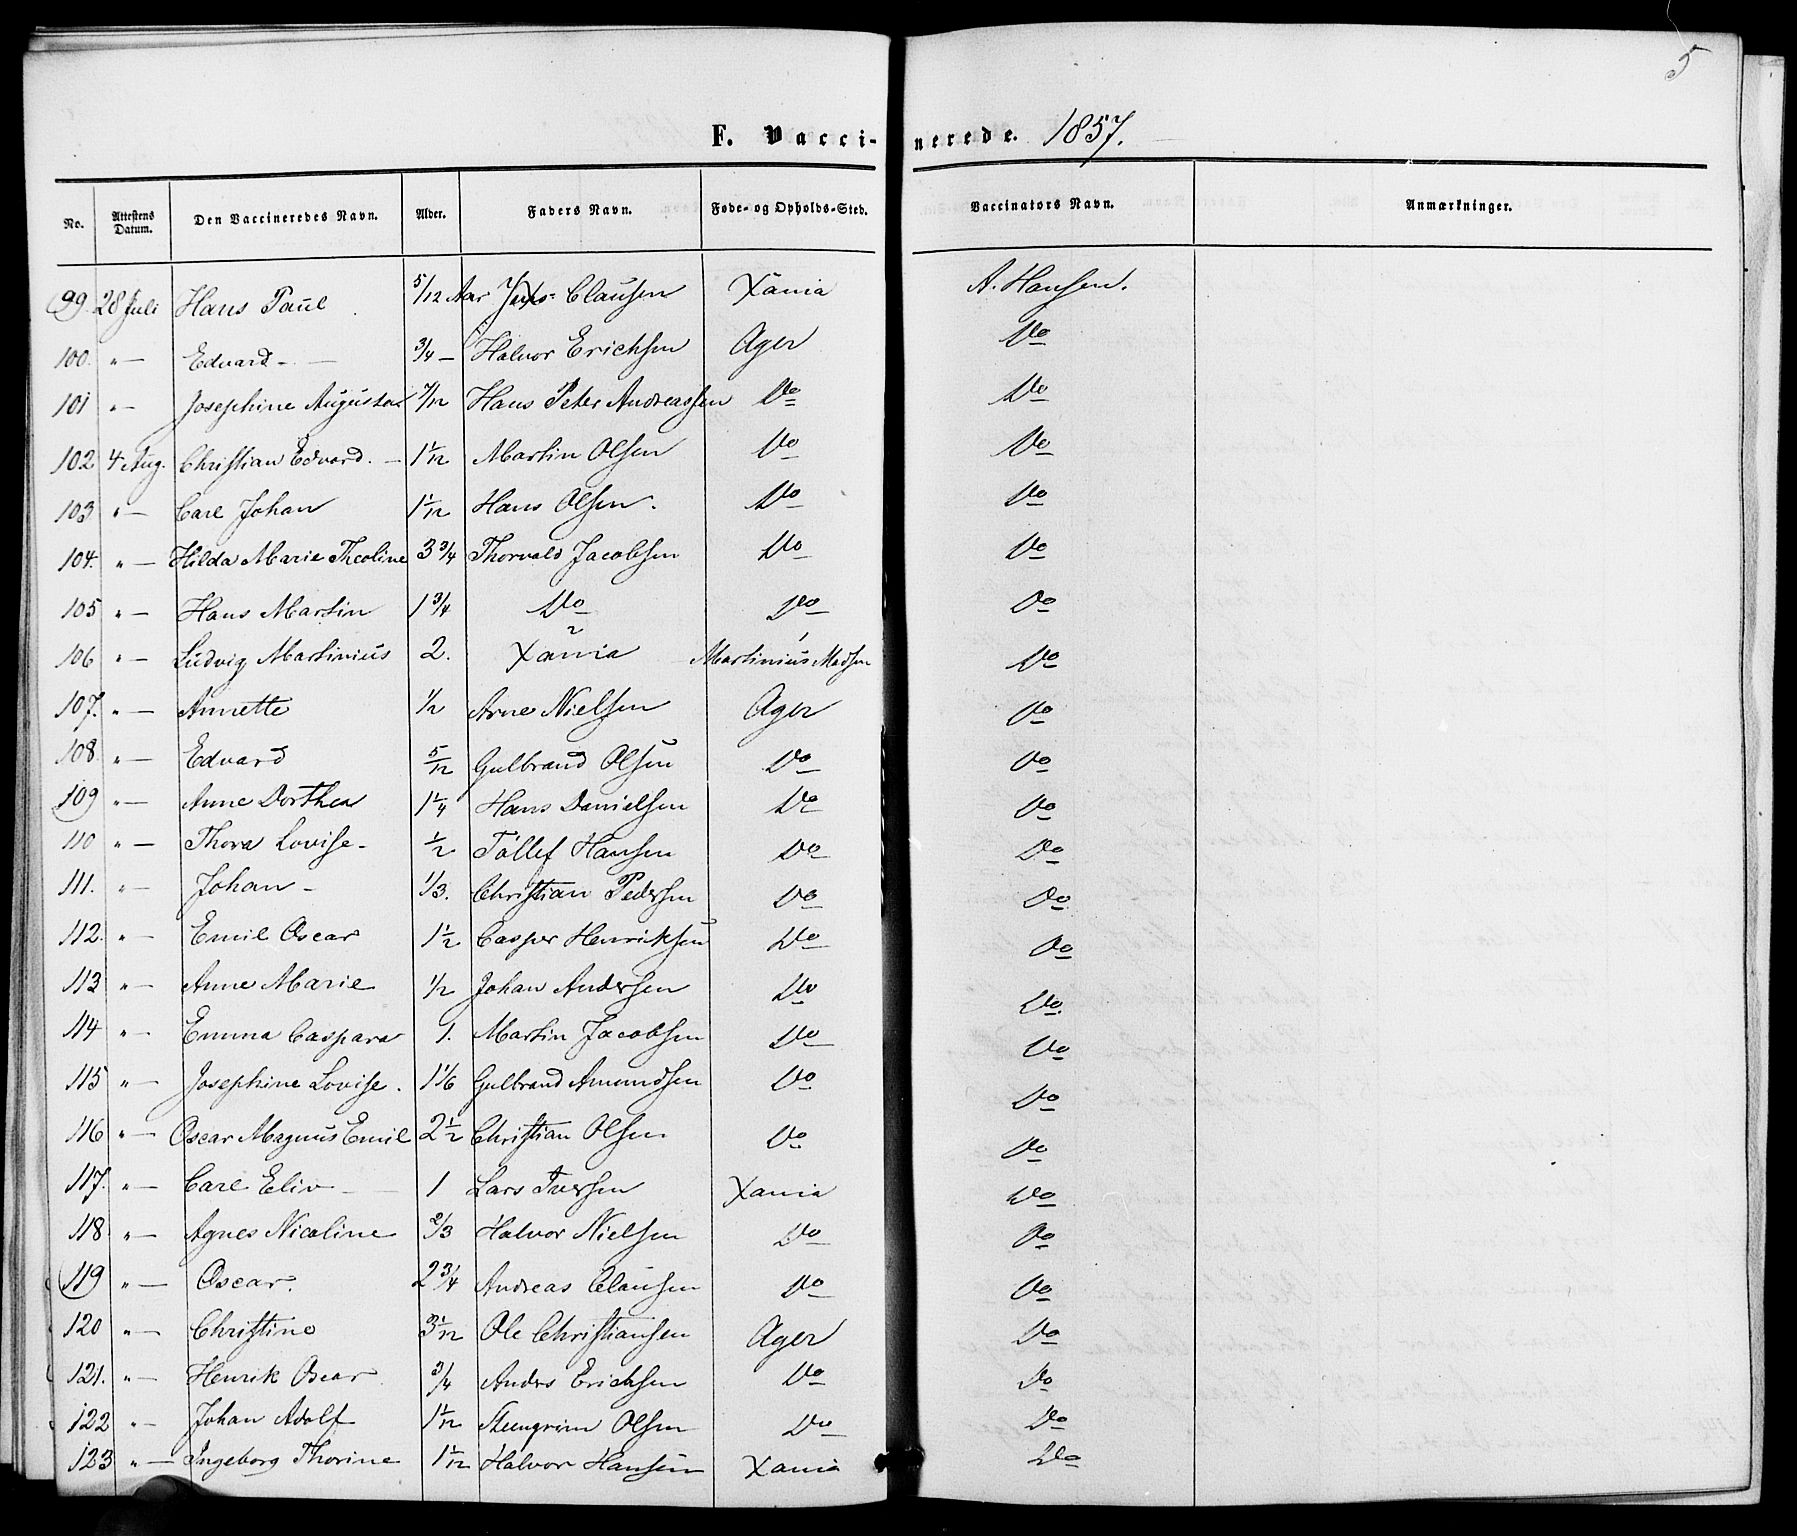 5
F. Vaccinerede. 1857.
No. Attestens Datum. Den Vaccineredes Navn. Alder. Faders Navn. Føde- og Opholds-Sted. Vaccinators Navn. Anmærkninger.
99. 28 Juli Hans Paul 5/12 Aar Clausen Xania A. Hansen.
100. " — Edvard - — 3/4 — Halvor Erichsen Ager Do
101 " — Josephine Augusta 7/12 Hans Peter Andreassen Do Do
102 4 Aug. Christian Edvard. — 1 1/12 Martin Olsen Do Do
103 " — Carl Johan 1 1/12 Hans Olsen. Do Do
104. " — Hilda Marie Theoline 3 3/4 Thorvald Jacobsen Do Do
105 " — Hans Martin 1 3/4 Do Do Do
106 " — Ludvig Martinius 2. 2 Xania 1 Martinius Madsen Do
107. " — Annette 1/2 Arne Nielsen Ager Do
108. " — Edvard 5/12 Gulbrand Olsen Do Do
109 " — Anne Dorthea 1 1/4 Hans Danielsen Do Do
110 " — Thora Lovise - 1/2 Tollef Hansen Do Do
111. " — Johan - 1/3. Christian Pedersen Do Do
112. " — Emil Oscar 1 1/2 Casper Henriksen Do Do
113 " — Anne Marie 1/2 Johan Andersen Do Do
114 " — Emma Caspara 1. Martin Jacobsen Do Do
115 " — Josephine Lovise. 1 1/6 Gulbrand Amundsen Do Do
116 " — Oscar Magnus Emil 2 1/2 Christian Olsen Do Do
117. " — Carl Eliv — 1 Lars Iversen Xania Do
118. " — Agnes Nicoline 2/3 Halvor Nielsen Do Do
119 " — Oscar. 2 3/4 Andreas Clausen Do Do
120 " — Christine 3 1/12 Ole Christiansen Ager Do
121. " — Henrik Oscar 3/4 Anders Erichsen Do Do
122 " — Johan Adolf 1 1/12 Steengrim Olsen Do Do
123 " — Ingeborg Thorine 1 1/12 Halvor Hansen Xania Do